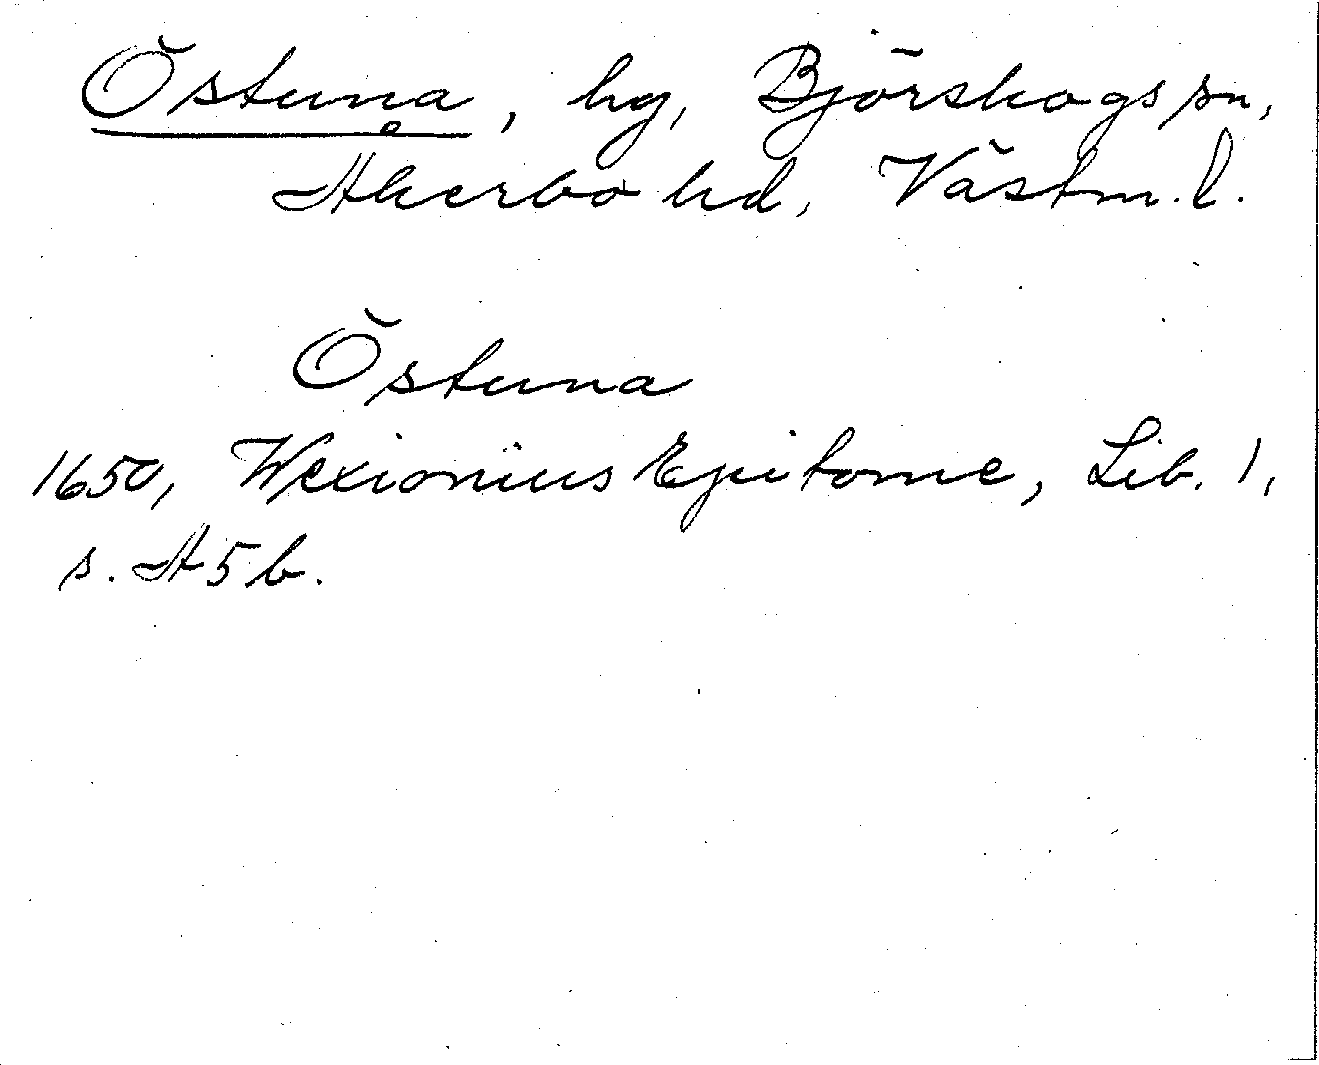 Östuna, hg, Björskogs sn,
Åkerbo hd, Västm. l.
Östuna
1650, Wexionius Epitome, Lib. 1,
s. A 5 b.